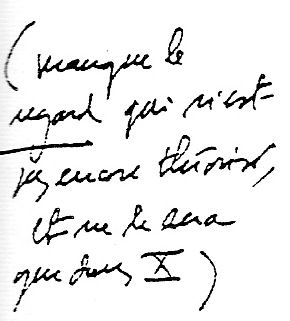 (manque le
regard qui n'est-
pas encore théorisé,
et ne le sera
que dans X)